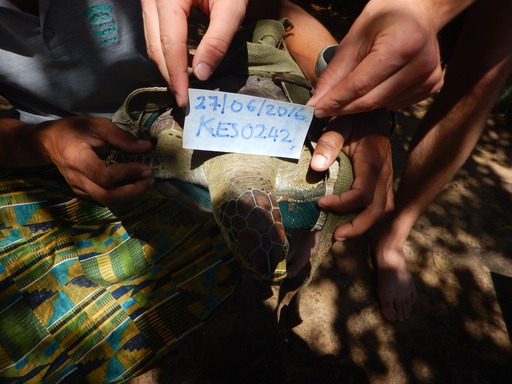 27/06/2016,
KES0242,